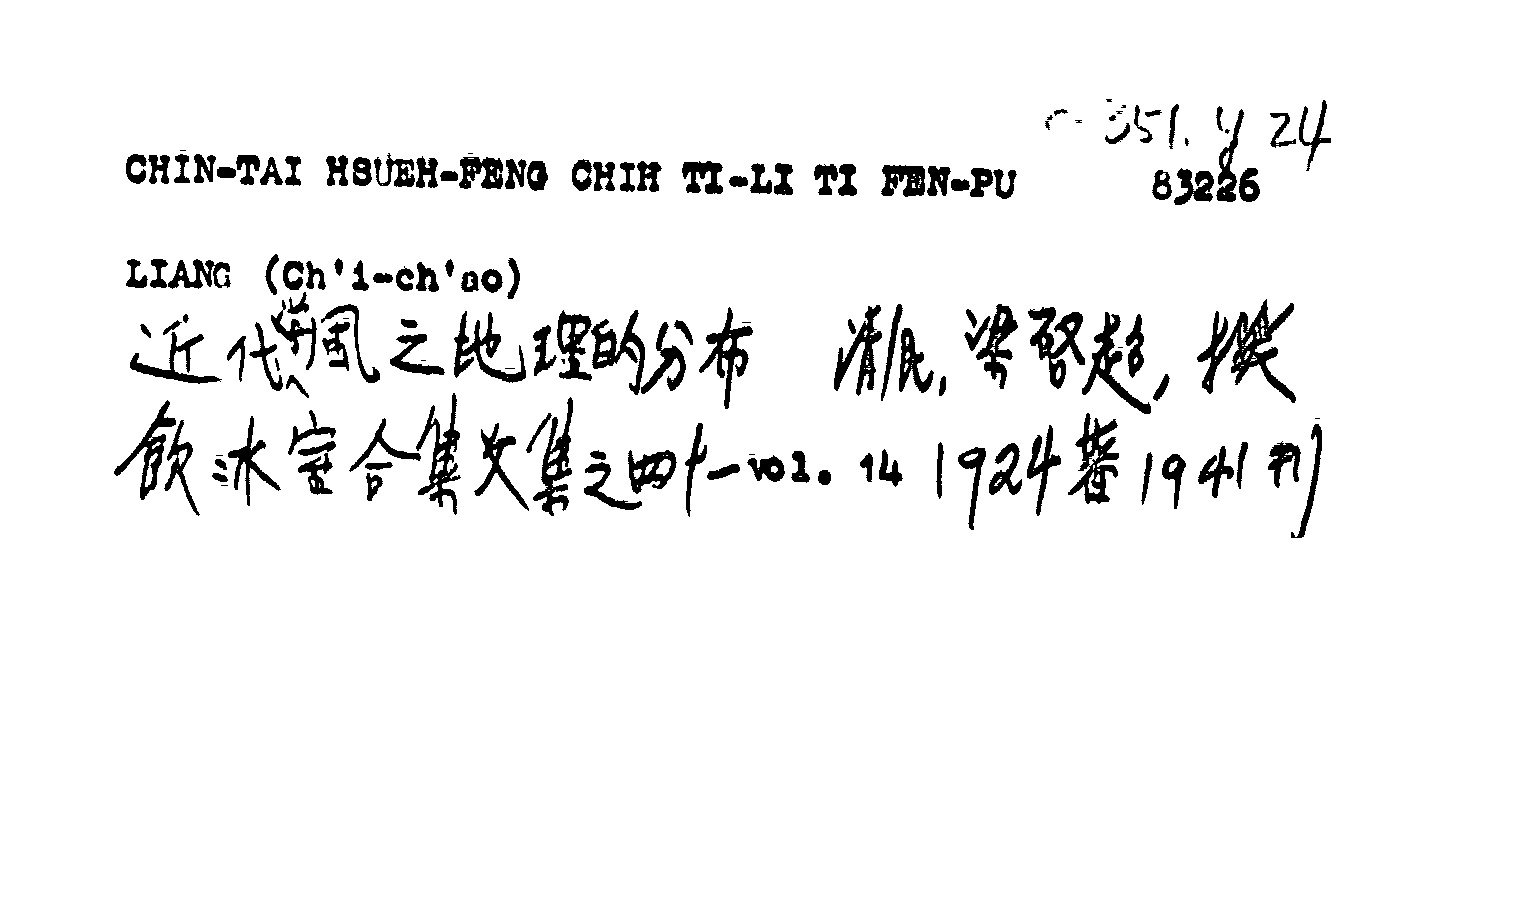 C 351. y 24
CHIN-TAI HSUEH-FENG CHIH TI-LI TI FEN-PU 83226
LIANG (Ch'i-ch'ao)
近代學風之地理的分布 清民, 梁啓超, 撰
飲冰室合集文集之四十一 vol. 14 1924著 1941刊